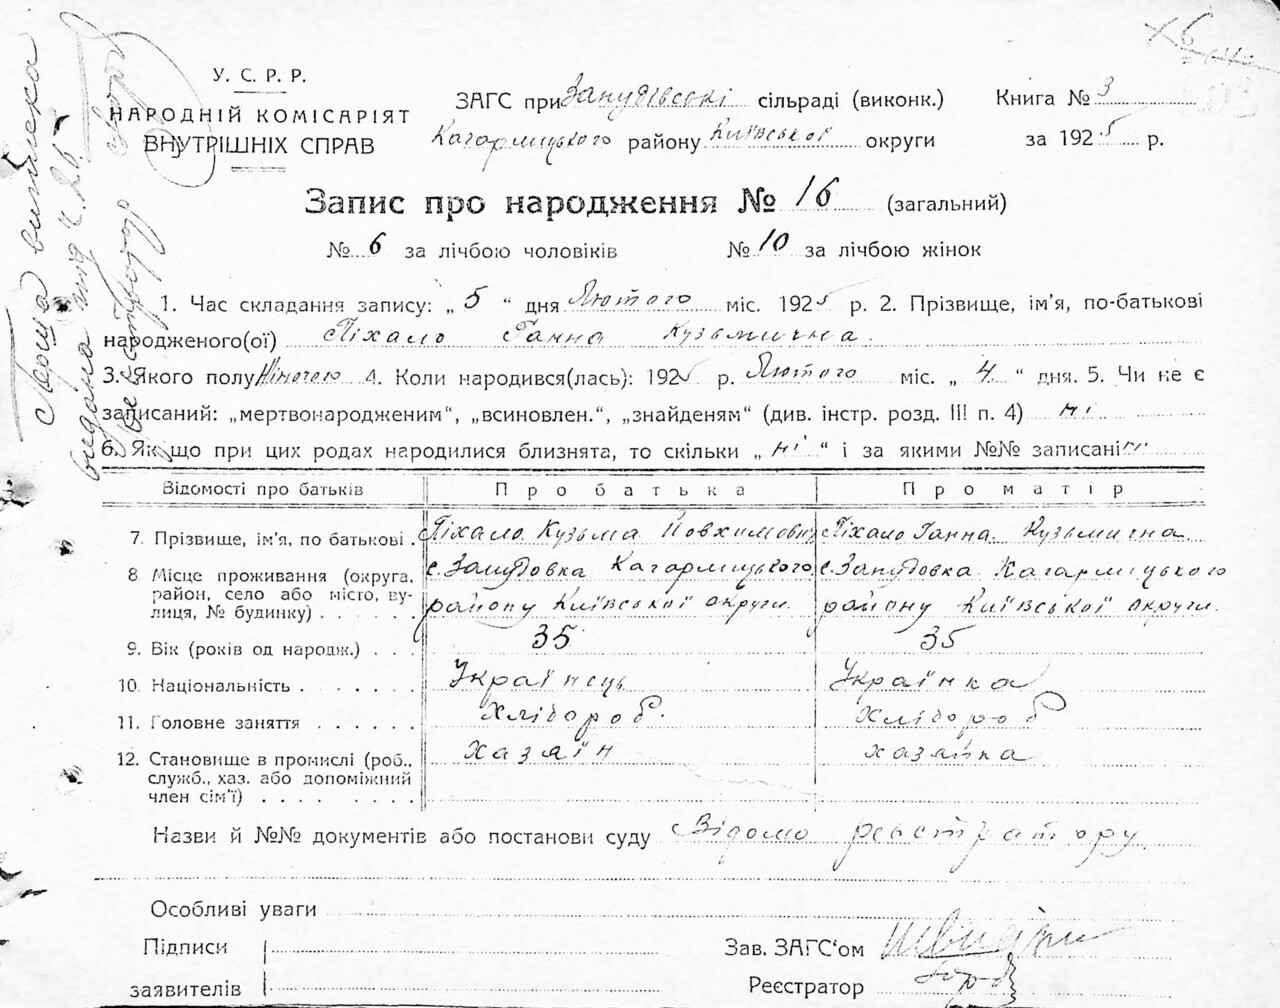 У. С. Р. Р.
НАРОДНІЙ КОМІСАРІЯТ
ВНУТРІШНІХ СПРАВ
ЗАГС при Занудівські сільраді (виконк.) Книга № 3
Кагарлицького району Київської округи за 1925 р.
Запис про народження № 16 (загальний)
№ 6 за лічбою чоловіків № 10 за лічбою жінок
1. Час складання запису: „ 5 " дня Лютого міс. 1925 р. 2. Прізвище, ім'я, по-батькові
народженого(ої) Піхало Ганна Кузьмична.
3. Якого полу Жіночого 4. Коли народився(лась): 1925 р. Лютого міс. „ 4 " дня. 5. Чи не є
записаний: „мертвонародженим", „всиновлен.", „знайденям" (див. інстр. розд. III п. 4) ні
6. Як що при цих родах народилися близнята, то скільки „ ні " і за якими №№ записані
Відомості про батьків Про батька Про матір
7. Прізвище, ім'я, по батькові . Піхало Кузьма Йовхимович Піхало Ганна Кузьмична
8 Місце проживання (округа, с. Занудовка Кагарлицького с. Занудовка Кагарлицького
район, село або місто, ву- району Київської округи. району Київської округи.
лиця, № будинку) . . . . . .
9. Вік (років од народж.) . . . 35 35
10. Національність . . . . . . . Українець Українка
11. Головне заняття . . . . . . Хлібороб. Хлібороб
12. Становище в промислі (роб., хазаїн хазяйка
служб., хаз. або допоміжний
член сім'ї) . . . . . . . .
Назви й №№ документів або постанови суду Відомо реєстратору
Особливі уваги
Підписи
заявителів
Зав. ЗАГС'ом
Реєстратор
Перша виписка
видана